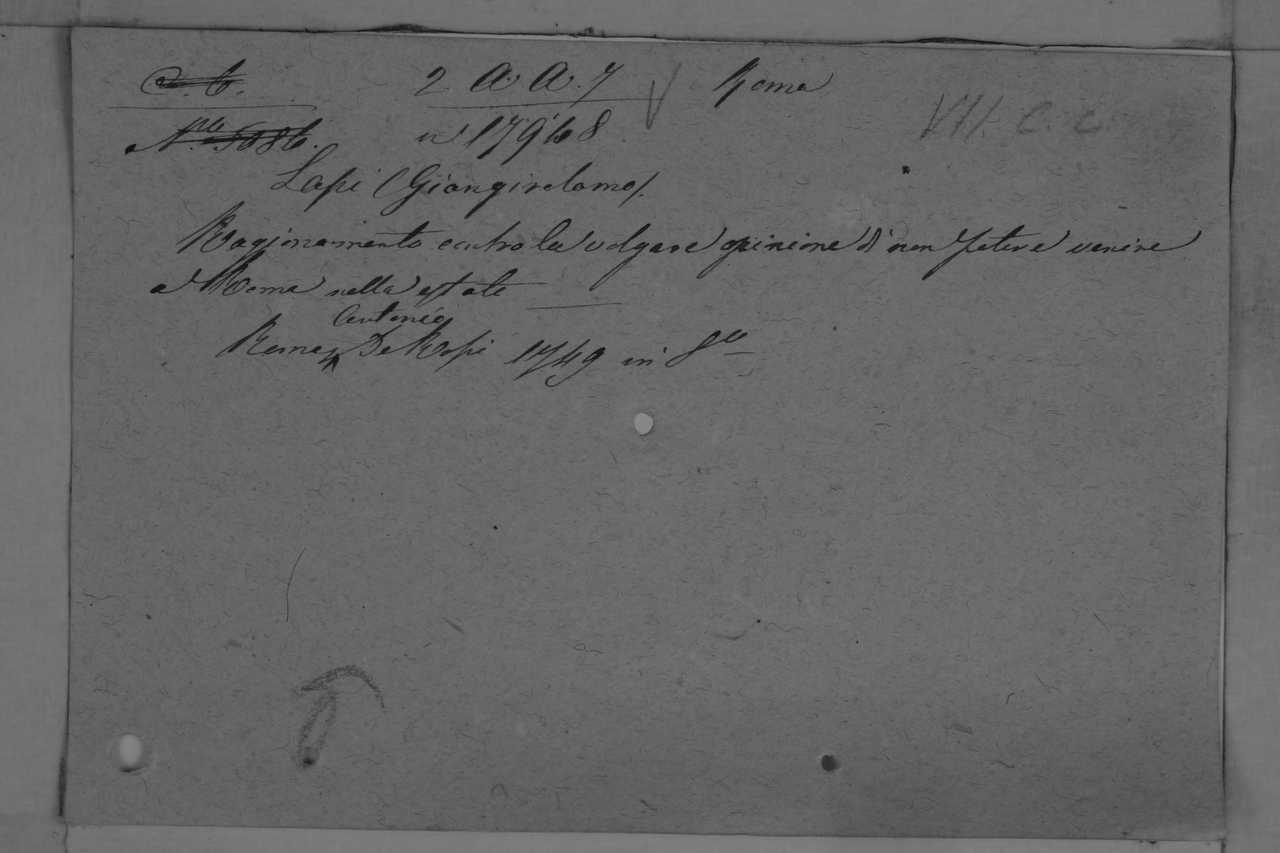 2 A. A. 7 Roma
VII. C. C
n° 17968
Lapi (Giangirolamo).
Ragionamento contro la volgare opinione di non potere venire
a Roma nella estate
Antonio
Roma De Rossi 1749 in 8°